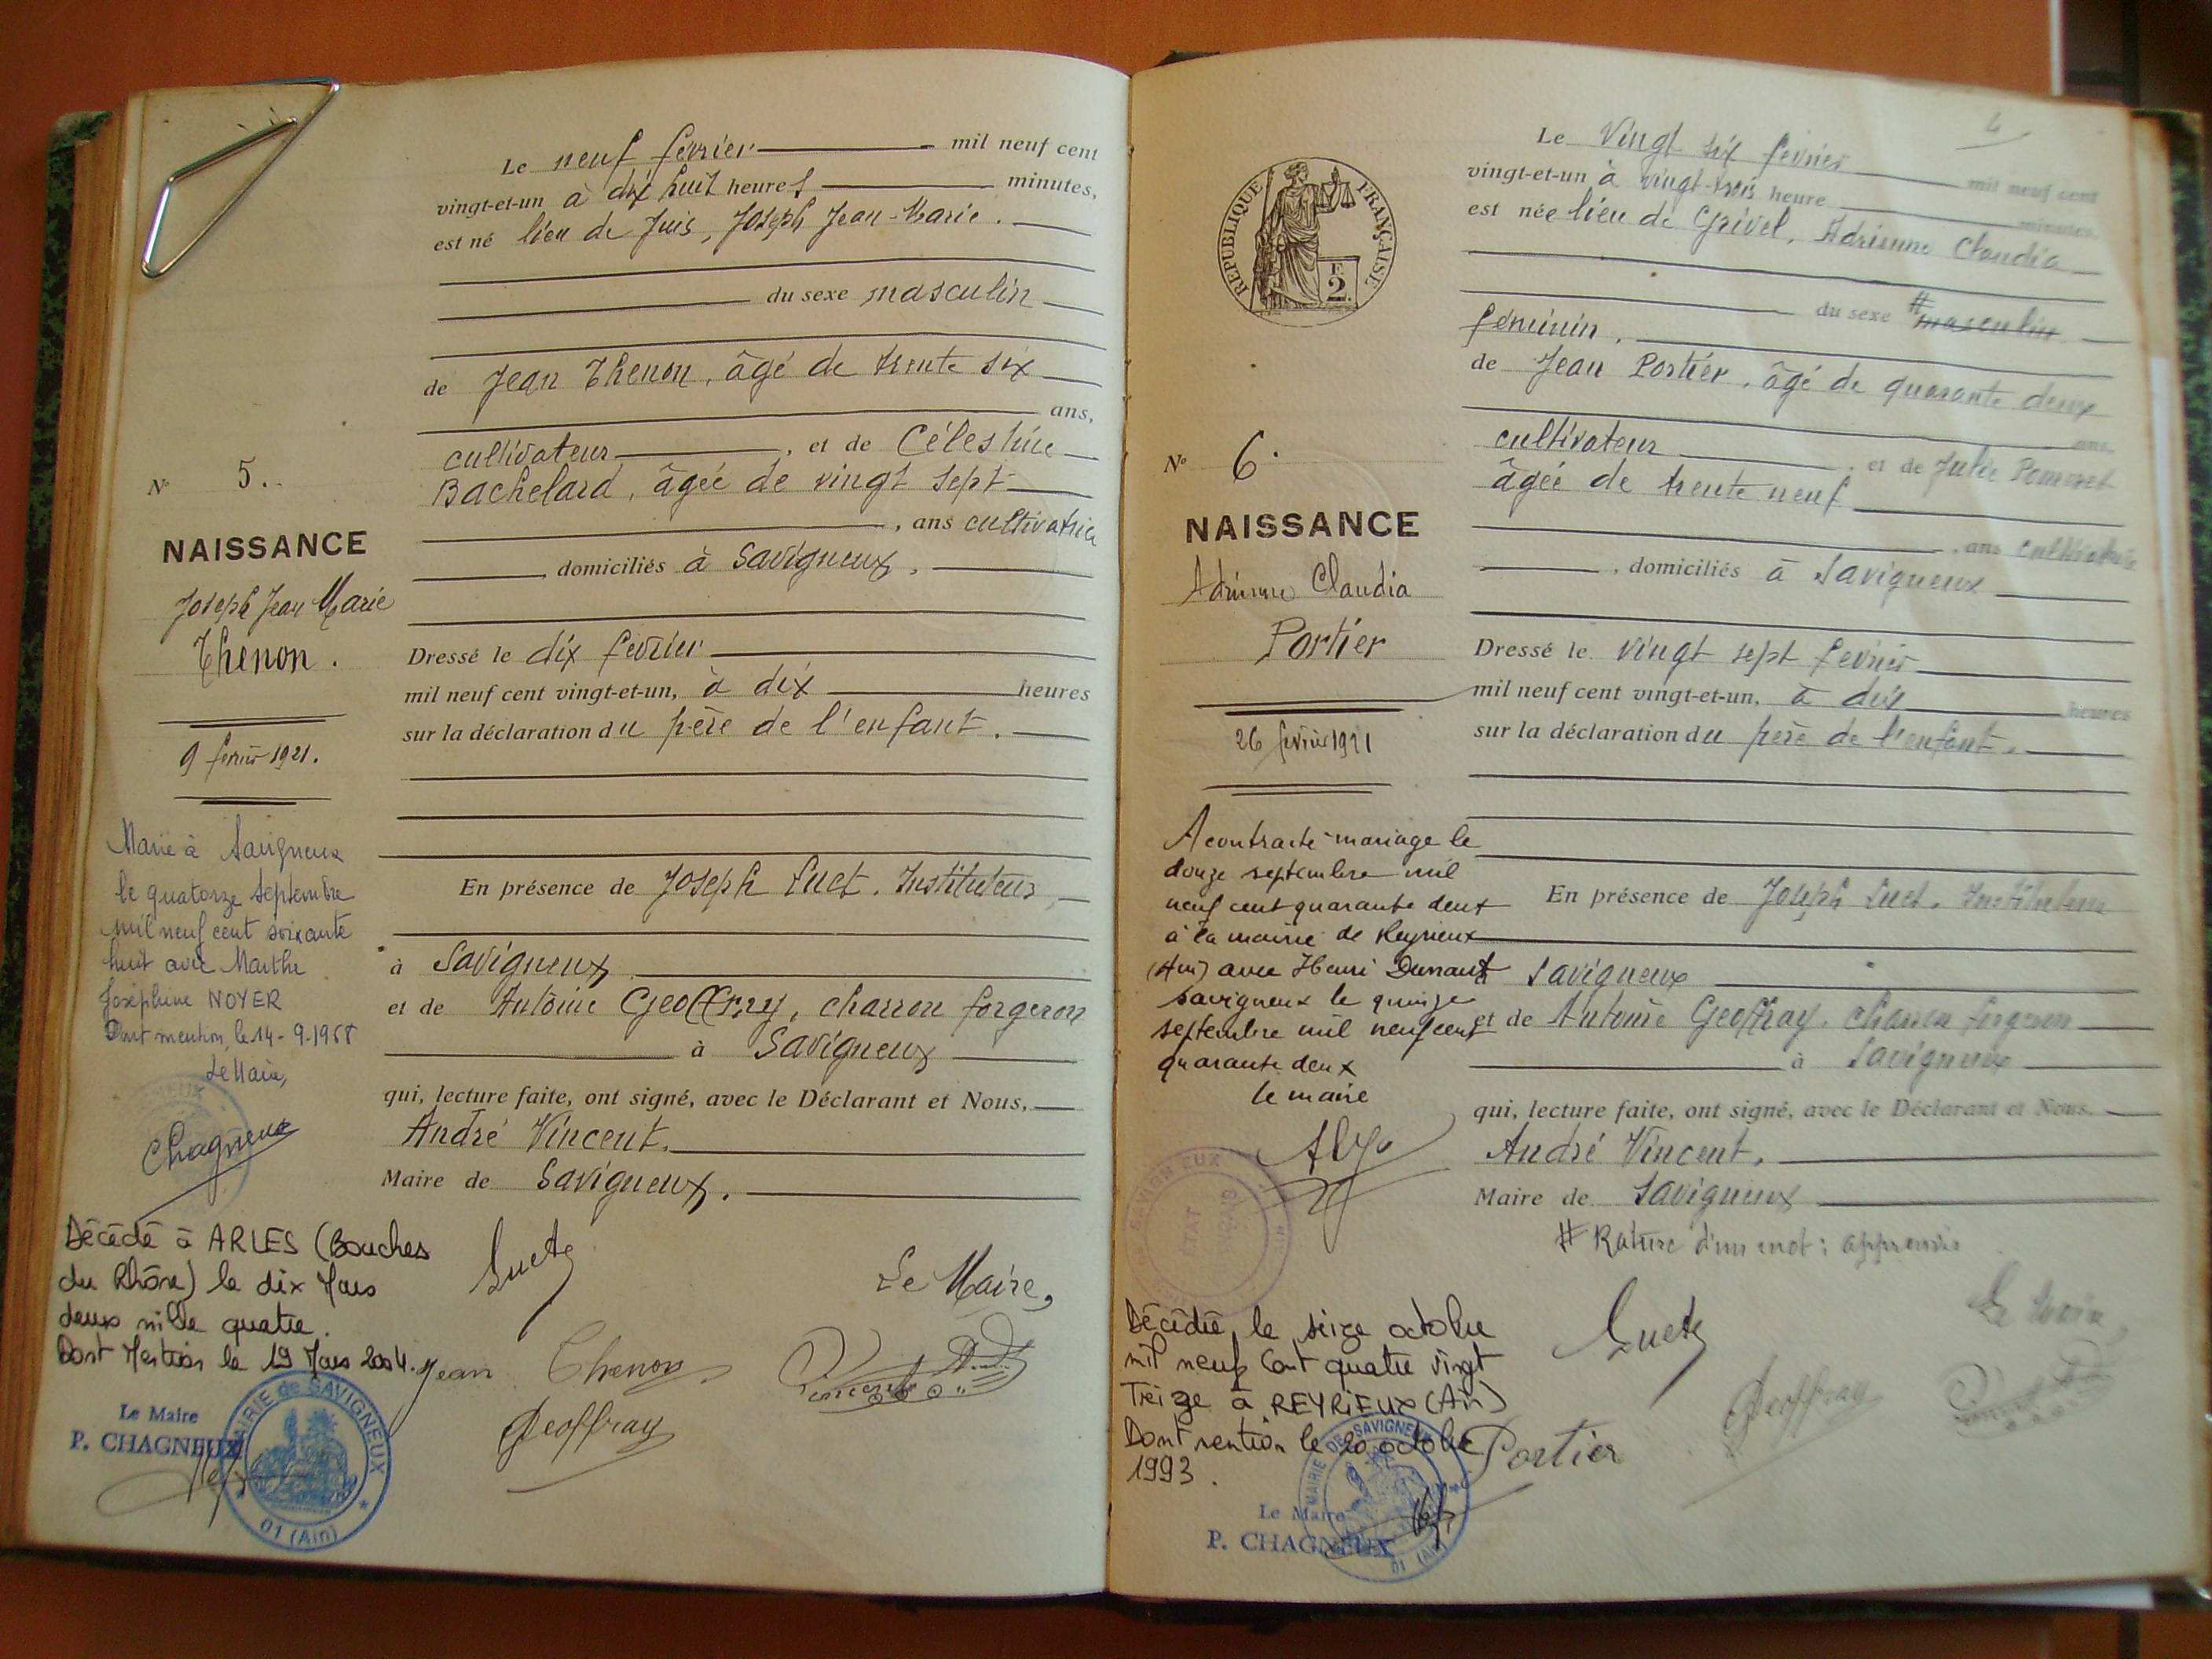 Nº 5.
NAISSANCE
Joseph Jean Marie
Thenon.
9 février 1921.
Marié à Savigneux
le quatorze Septembre
mil neuf cent soixante
huit avec Marthe
Joséphine NOYER
Dont mention, le 14-9-1968
Le Maire,
Chagneux
Décédé à ARLES (Bouches
du Rhône) le dix Mars
deux mille quatre.
Dont Mention le 19 Mars 2004.
Le Maire
P. CHAGNEUX
MAIRIE de SAVIGNEUX
01 (Ain)
Le neuf février mil neuf cent
vingt-et-un à dix huit heures minutes,
est né lieu de Juis, Joseph Jean-Marie.
du sexe masculin
de Jean Thenon, âgé de trente six
ans,
cultivateur, et de Célestine
Bachelard, âgée de vingt sept
, ans cultivatrice
domiciliés à Savigneux,
Dressé le dix février
mil neuf cent vingt-et-un, à dix heures
sur la déclaration du père de l'enfant.
En présence de Joseph Luct, Instituteur,
à Savigneux
et de Antoine Geoffray, charron forgeron
à Savigneux
qui, lecture faite, ont signé, avec le Déclarant et Nous,
André Vincent,
Maire de Savigneux.
Le Maire,
Jean Thenon
Geoffray
4
REPUBLIQUE FRANÇAISE
F.
2.
Nº 6.
NAISSANCE
Adrienne Claudia
Portier
26 février 1921
A contracté mariage le
douze septembre mil
neuf cent quarante deux
à la mairie de Reyrieux
(Ain) avec Henri Dunant
Savigneux le quinze
septembre mil neuf cent
quarante deux
le maire
Décédée, le seize octobre
mil neuf Cent quatre vingt
Treize à REYRIEUX (Ain)
Dont mention le 20 octobre
1993.
Le Maire
P. CHAGNEUX
MAIRIE DE SAVIGNEUX
01 (Ain)
Le Vingt six février mil neuf cent
vingt-et-un à vingt-trois heure minutes,
est née lieu de Grivel, Adrienne Claudia
du sexe # masculin
féminin.
de Jean Portier, âgé de quarante deux
ans,
cultivateur, et de Julie
âgée de trente neuf
, ans cultivatrice
, domiciliés à Savigneux
Dressé le vingt sept février
mil neuf cent vingt-et-un, à dix heures
sur la déclaration du père de l'enfant.
En présence de Joseph Luct, Instituteur
Savigneux
et de Antoine Geoffray, charron forgeron
à Savigneux
qui, lecture faite, ont signé, avec le Déclarant et Nous,
André Vincent,
Maire de Savigneux
# Rature d'un mot: approuvée
Le Maire,
Geoffray
Portier